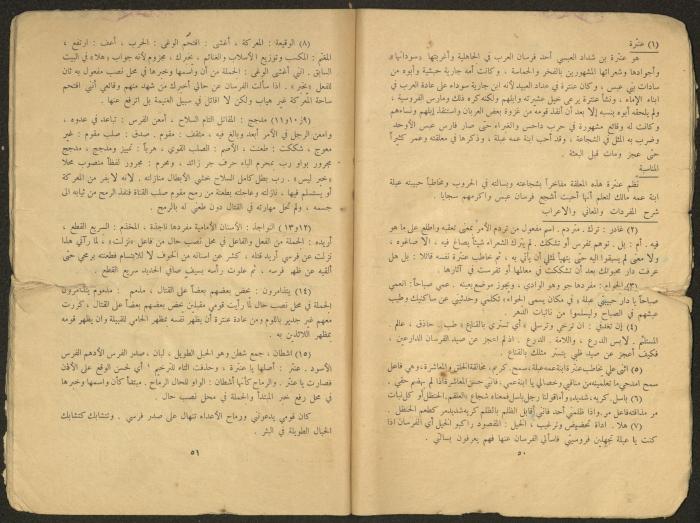 (٦) عنترة
هو عنترة بن شداد العبسي أحد فرسان العرب في الجاهلية وأغربتها «سودانها»
وأجوادها وشعرائها المشهورين بالفخر والحماسة ، وكانت أمه جارية حبشية وأبوه من
سادات بني عبس ، وكان عنترة في عداد العبيد لأنه ابن جارية سوداء على عادة العرب في
أبناء الإماء ، ونشأ عنترة يرعى خيل عشيرته وابلهم ولكنه كره ذلك ومارس الفروسية ،
ولم يلحقه أبوه بنسبه إلا بعد أن أنقذ قومه من غزوة بعض العربان واستنقذ إبلهم ونساءهم
وكانت له وقائع مشهورة في حرب داحس والغبراء حتى صار فارس عبس الأوحد
وضرب به المثل في الشجاعة ، وقد أحب ابنة عمه عبلة ، وذكرها في معلقته وعمر كثيراً
حتى عجز ومات قبيل البعثة .
المناسبة
نظم عنترة هذه المعلقة مفاخراً بشجاعته وبسالته في الحروب ومخاطباً حبيبته عبلة
ابنة عمه مالك لتعلم أنها أحبت أشجع فرسان عبس وأكرمهم سجايا .
شرح المفردات والمعاني والاعراب
(٢) غادر : ترك . متردم . اسم مفعول من تردم الأمر بمعنى تعقبه واطلع على ما هو
فيه . أم : بل . توهم تفرس أو تشكك . لم يترك الشعراء شيئاً يصاغ فيه ، الا صاغوه ،
ولا معنى لم يسبقوا اليه حتى يتهيأ لمثلي أن يأتي به ، ثم خاطب عنترة نفسه قائلا : بل هل
عرفت دار محبوبتك بعد أن تشككت في معالمها أو تفرست في آثارها .
(٣) الجواء : مفردها جو وهو الوادي ، ويجوز موضع بعينه . عمي صباحاً : انعمي
صباحاً يا دار حبيبتي عبلة ، في مكان يسمى الجواء ، تكلمي وحدثيني عن ساكنيك وطيب
عيشهم في الصباح وليسلموا من نائبات الدهر .
(٤) إن تغدفي : ان ترخي وترسلي «أي تستري بالقناع» طب . حاذق ، عالم .
المستلئم . لابس الدرع ، واللامة . الدرع . اذا لم اعجز عن صيد الفرسان الدارعين ،
فكيف أعجز عن صيد ظبي يتستر مثلك بالقناع .
(٥) اثني علي تخاطب عنترة ابنة عمه عبلة ، سمح . كرم ، مخالقة الخلق والمعاشرة ، وهي فاعل
سمح امدحي ما تعلمينه من مناقبي وخصالي يا ابنة عمي ، فاني حسن المعاشرة اذا لم يهضم حقي .
(٦) باسل كريه ، شديد ، وأما قولنا رجل باسل فمعناه شجاع (العلقم ، الحنظل أو كل نبات
مر مذاقته فاعل مر . واذا ظلمني أحد فاني أقابل الظلم بالظلم كريه شديد مر كطعم الحنظل .
(٧) هلا . اداة تحضيض وترغيب ، الخيل : المقصود راكبو الخيل أي الفرسان اذا
كنت يا عبلة تجهلين فروسيتي فاسألي الفرسان عنها فهم يعرفون بسالتي .
٥٠
(٨) الوقيعة : المعركة ، أغشى : افتحم الوغى : الحرب ، أعف : ارتفع ،
المغنم : المكسب وتوزيع الأسلاب والغنائم ، يخبرك ، مجزوم لأنه جواب «هلا» في البيت
السابق . انني أغشى الوغى : الجملة من أن واسمها وخبرها في محل نصب مفعول به ثان
للفعل «يخبر» . اذا سألت الفرسان عن حالي أخبرك من شهد منهم وقائعي أنني اقتحم
ساحة المعركة غير هياب ولكن لا اقاتل في سبيل الغنيمة بل اترفع عنها .
(٩و١٠و١١) مدجج : المقاتل التام السلاح ، أمعن الفرس : تباعد في عدوه .
وامعن الرجل في الأمر أبعد وبالغ فيه ، مثقف . مقوم . صدق : صلب مقوم : غير
معوج ، شككت : طعنت ، الأصم : الصلب القوي ، هرباً : تمييز ومدجج ، مدجج
مجرور بواو رب بمحرم الباء حرف جر زائد ، ومحرم : مجرور لفظاً منصوب محلا
«خبر ليس» . رب بطل كامل السلاح خشي الأبطال منازلته ، لانه لا يفر من المعركة
أو يستسلم فيها ، نازلته وعاجلته بطعنة من رمح مقوم صلب القناة فنفذ الرمح من ثيابه الى
جسمه ، ولم تحل مهارته في القتال دون طعني له بالرمح .
(١٢و١٣) النواجذ : الأسنان الأمامية مفردها ناجذة . المخذم : السريع القطع ،
أريده : الجملة من الفعل والفاعل في محل نصب حال من فاعل «نزلت» ، لما رآني هذا
نزلت عن فرسي أريد قتله ، كشر عن اسنانه من الخوف لا للابتسام فطعنته برمحي حتى
ألقيه عن ظهر فرسه ، ثم علوت رأسه بسيف صافي الحديد سريع القطع .
(١٤) يتذامرون : يحض بعضهم بعضاً على القتال ، مذمم : مذموم يتذامرون
الجملة في محل نصب حال لما رأيت قومي مقبلين يحض بعضهم بعضاً على القتال ، كررت
معهم غير جدير باللوم ومن عادة عنترة أن يظهر نفسه بمظهر الحامي للقبيلة وان يظهر قومه
بمظهر اللائذين به .
(١٥) اشطان ، جمع شطن وهو الحبل الطويل ، لبان ، صدر الفرس الأدهم الفرس
الأسود . عنتر : أصلها يا عنترة ، وحذفت التاء للترخيم ، أي يحسن الوقع على الأذن
فصارت يا عنتر . والرماح كأنها أشطان : الواو للحال الرماح . مبتدأ كأن واسمها وخبرها
في محل رفع خبر المبتدأ والجملة في محل نصب حال .
كان قومي يدعونني ورماح الأعداء تنهال على صدر فرسي . وتتشابك كتشابك
الحبال الطويلة في البئر .
٥١